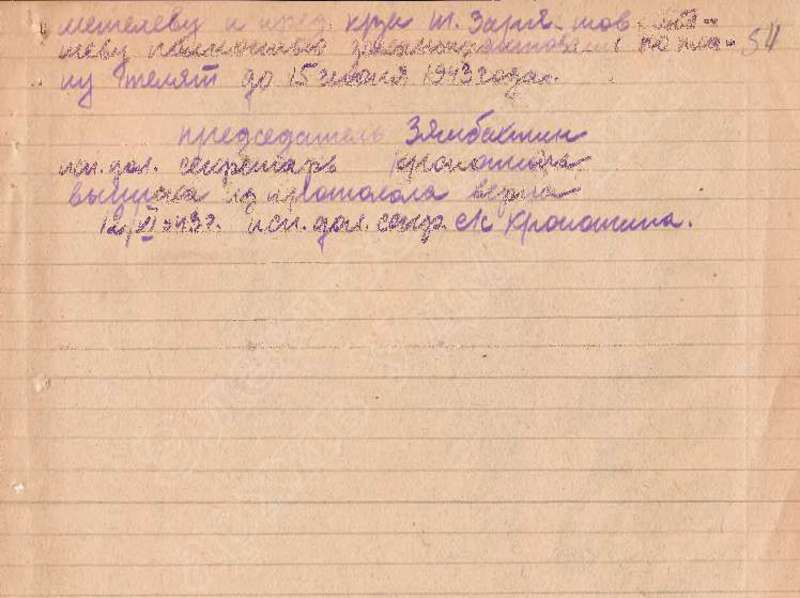 метелеву и пред. к-зи т. Заря тов.
шеву полностью законтрактовать по пла- 54
ну телят до 15 июня 1943 года.
председатель Зямбахтин
исп. дол. секретарь Кропотина
выписка из протокола верна
12/VI-43 г. исп. дол. секр. Кропотина.